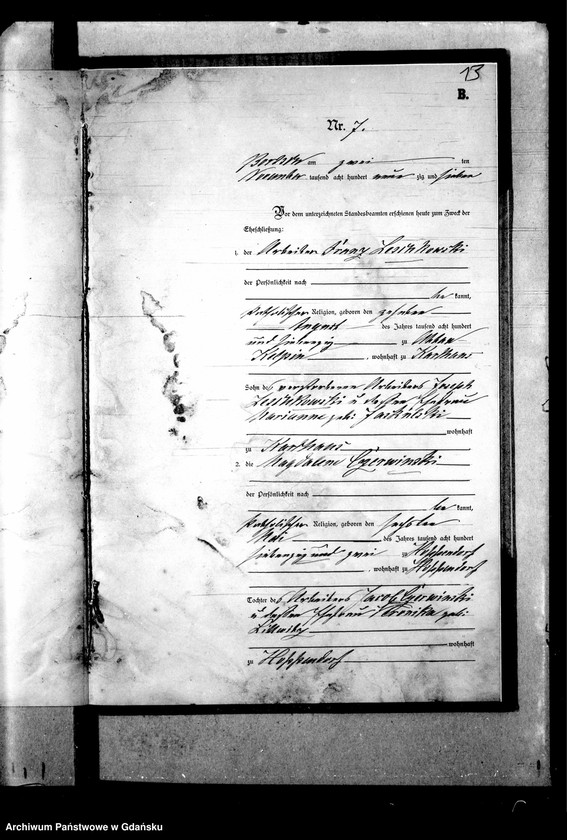 13
B.
Nr. 7.
am zwei ten
November tausend acht hundert neun zig und sieben
Vor dem unterzeichneten Standesbeamten erschienen heute zum Zweck der
Eheschließung:
1. der Arbeiter Franz
der Persönlichkeit nach
be kannt,
katholischer Religion, geboren den zehnten
August des Jahres tausend acht hundert
und siebenzig zu
, wohnhaft zu Karthaus
Sohn des verstorbenen Arbeiters Joseph
u dessen Ehefrau
Marianne geb.
wohnhaft
zu Karthaus
2. die Magdalene Czerwinski
der Persönlichkeit nach
be kannt,
katholischer Religion, geboren den sechsten
Mai des Jahres tausend acht hundert
siebenzig und zwei zu Hoppendorf
, wohnhaft zu Hoppendorf
Tochter des Arbeiters Jacob Czerwinski
u dessen Ehefrau Veronika geb.
wohnhaft
zu Hoppendorf
Archiwum Państwowe w Gdańsku